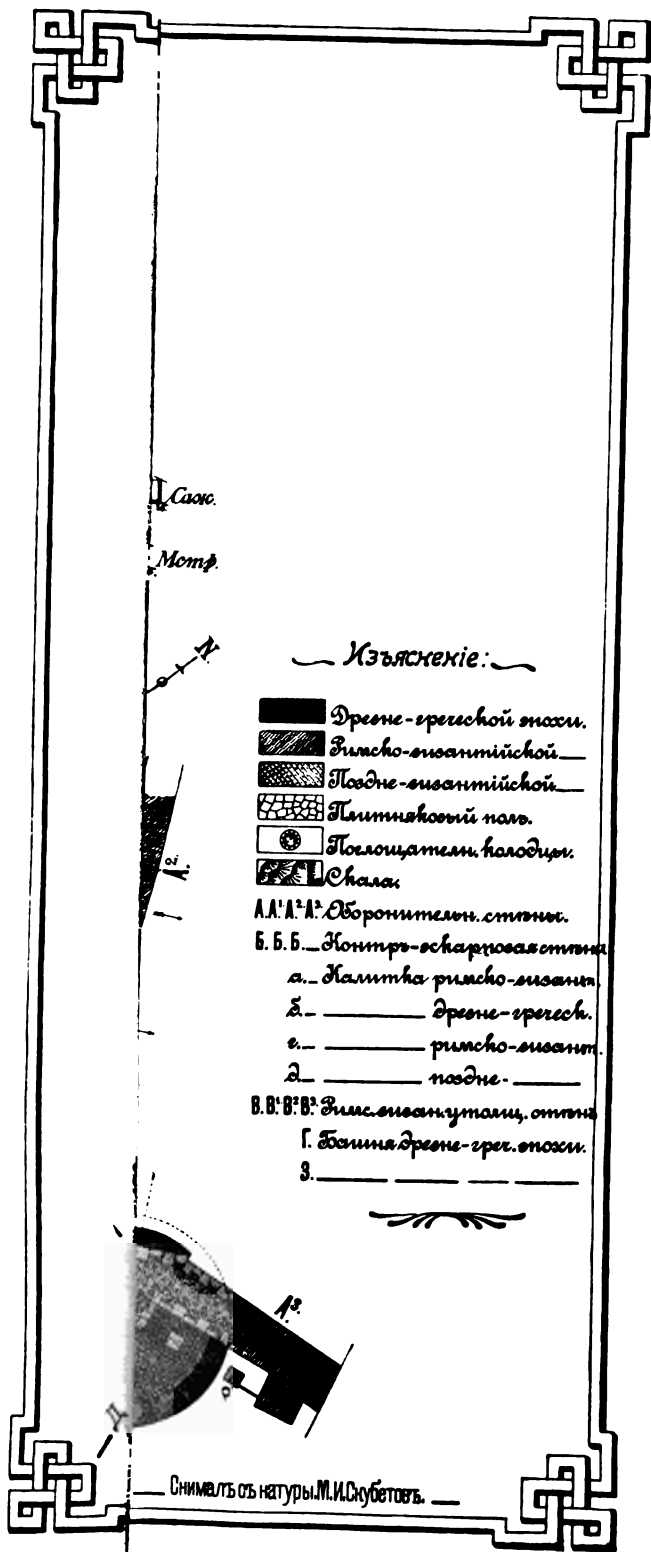 Саж.
Метр.
N.
Изъясненіе:
Древне-греческой эпохи.
Римско-византійской
Поздне-византійской
Плитняковый полъ.
Поглощательн. колодцы.
Скала.
А.А¹.А².А³. Оборонительн. стѣны.
Б. Б. Б. Контръ-эскарповая стѣна
а. Калитка римско-визант.
б. древне-греческ.
в. римско-визант.
д. поздне-
В. В¹. В². В³. Римс. визан. утолщ. стѣнъ
Г. Башня древне-греч. эпохи.
З.
А².
А³.
Д
Снималъ съ натуры М.И.Скубетовъ.